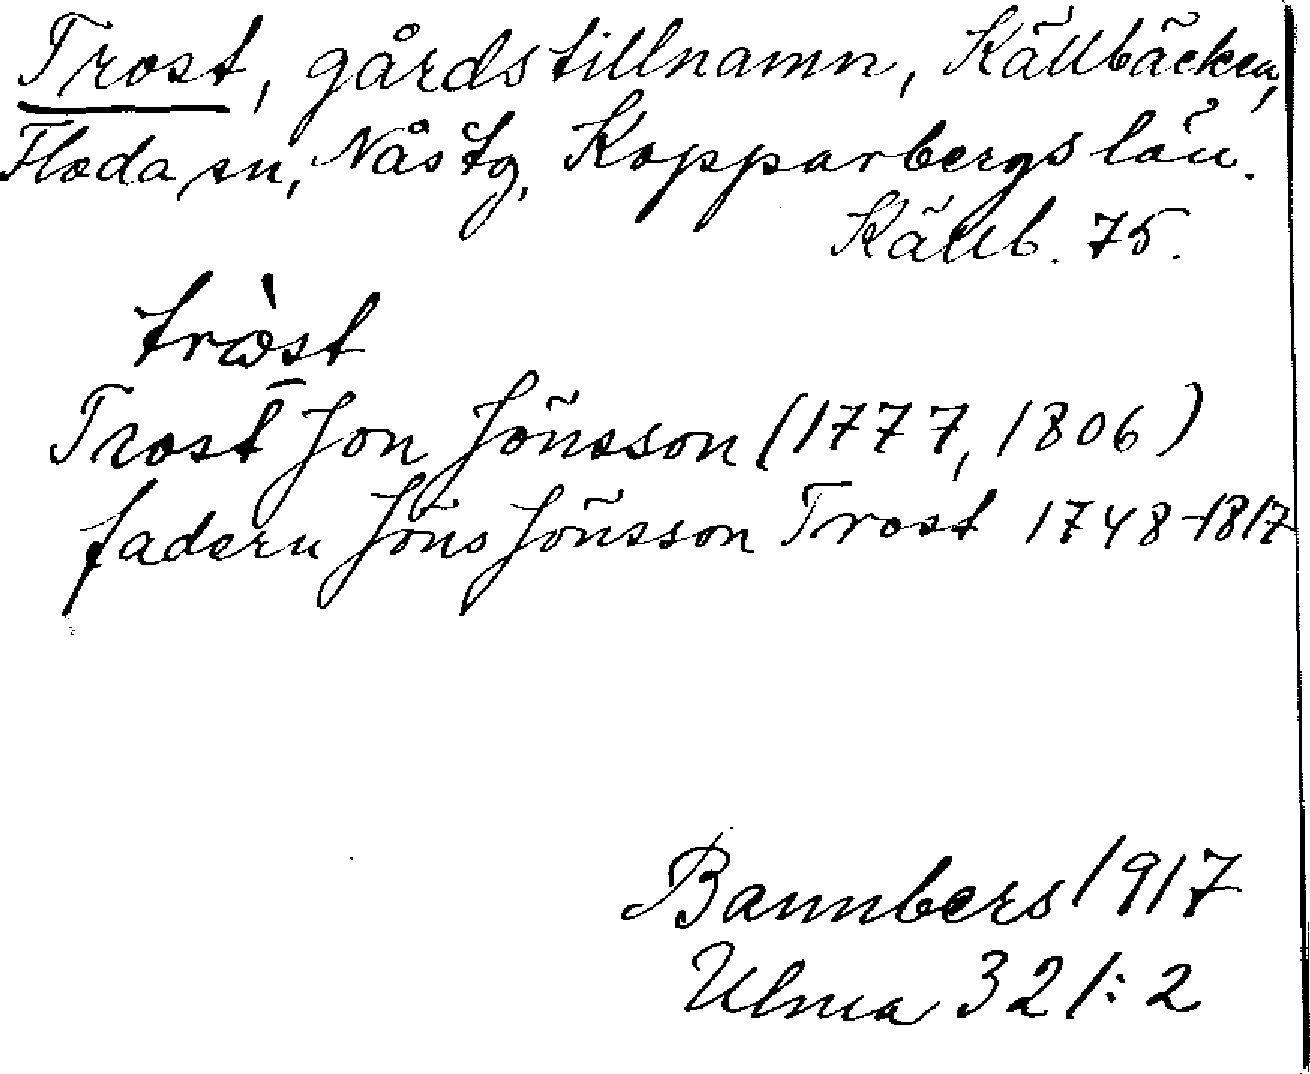 Trost, gårdstillnamn, Källbäcken,
Floda sn, Nås tg, Kopparbergs län.
Källb. 75.
trɷ̀st
Trost Jon Jönsson (1777, 1806)
fadern Jöns Jönsson Trost 1748-1817
Bannbers 1917
Ulma 321:2